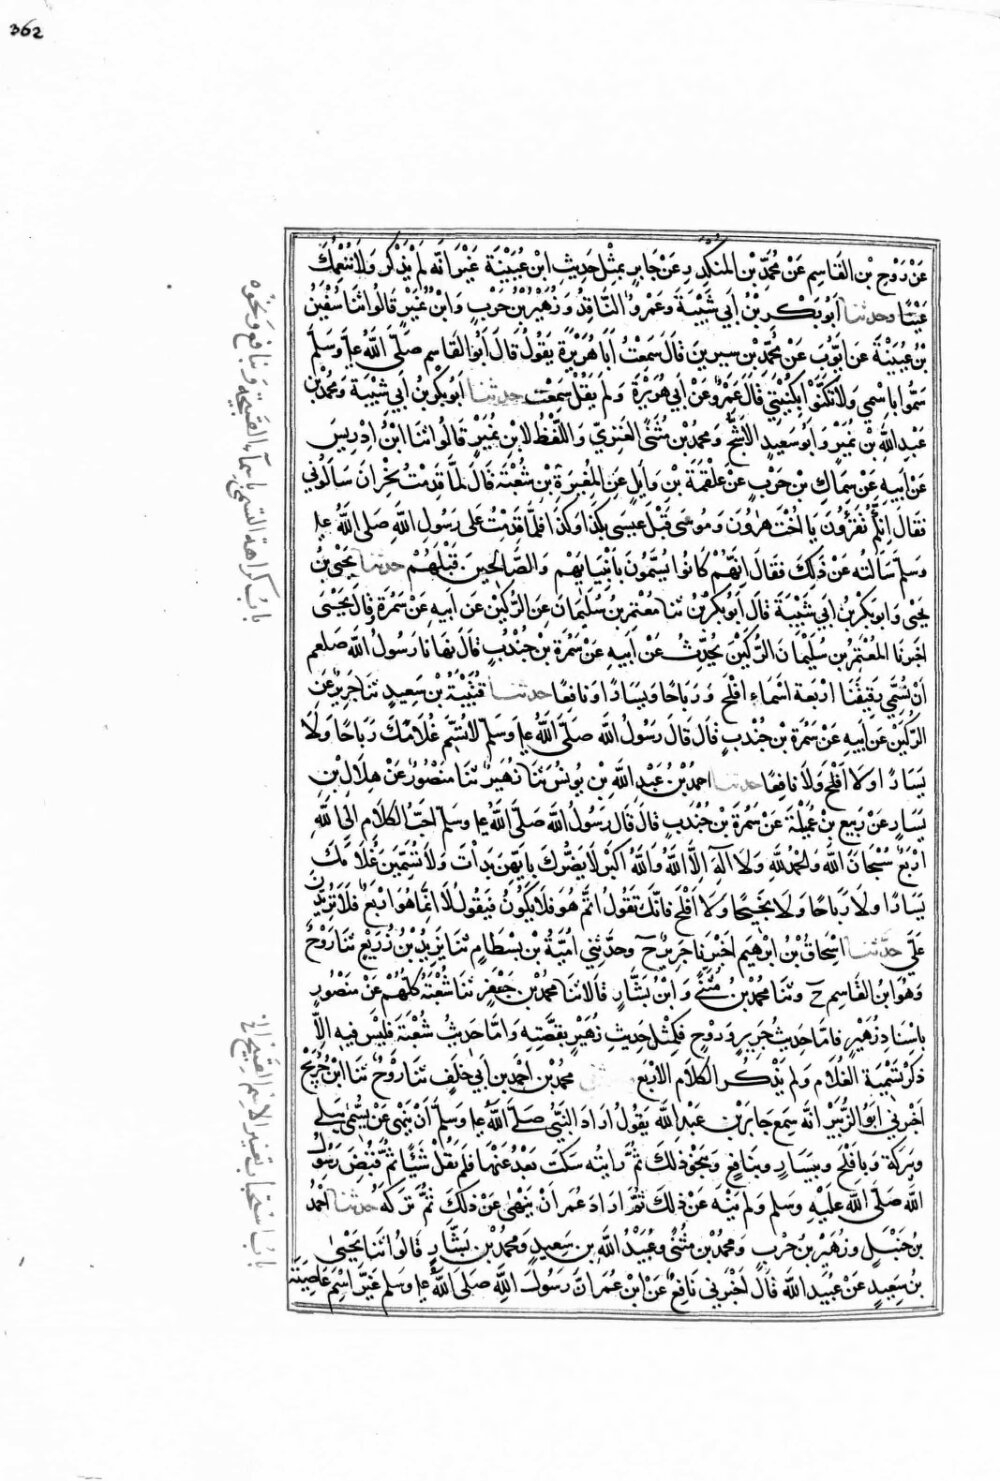 362
عَنْ رَوْحِ بْنِ القَاسِمِ عَنْ مُحَمَّدِ بْنِ المُنْكَدِرِ عَنْ جَابِرٍ بِمِثْلِ حَدِيثِ ابْنِ عُيَيْنَةَ غَيْرَ انَّه لَمْ يَذْكُر وَلَا نُنْعِمُكَ
عَيْنًا وحدثنا أَبُو بَكْرِ بْنُ أَبِي شَيْبَةَ وَعَمْرٌو النَّاقِدُ وَزُهَيْرُ بْنُ حَرْبٍ وَابْنُ نُمَيْرٍ قَالُوا ثَنَا سُفْيَنُ
بْنُ عُيَيْنَةَ عَن أَيُّوبَ عَنْ مُحَمَّدِ بْنِ سِيرِينَ قَالَ سَمِعْتُ أَبَا هُرَيْرَةَ يَقُولُ قَالَ أَبُو القَاسِمِ صَلَّى اللَّهُ عليه وَسَلَّمَ
سَمُّوا بِاسْمِي وَلَا تَكَنَّوْا بِكُنْيَتِي قَالَ عَمْرٌو عَنْ أَبِي هُرَيْرَةَ وَلَم يَقُلْ سَمِعْت حدثنا أَبُو بَكْرِ بْنُ أَبِي شَيْبَةَ وَمُحَمَّدُ بْنُ
عَبْدِ اللَّهِ بْنِ نُمَيْرٍ وَابُو سَعِيدٍ الأَشَجُّ وَمُحَمَّدُ بْنُ مُثَنَّى العَنَزِيُّ وَاللَّفْظُ لِابْنِ نُمَيْرٍ قَالُوا ثنا ابْنُ اِدْرِيسَ
عَن أَبِيهِ عَنْ سِمَاكِ بْنِ حَرْبٍ عَنْ عَلْقَمَةَ بْنِ وَايِلٍ عَنِ المُغِيرَةِ بْنِ شُعْبَةَ قَالَ لَمَّا قَدِمْتُ نَجْرَانَ سَأَلُونِي
فَقَالَ اِنَّكُمْ تَقْرَؤُنَ يَا أُخْتَ هَرُونَ وَمُوسَى قَبْلَ عِيسَى بِكَذَا وَكَذَا فَلَمَّا قَدِمْتُ عَلَى رَسُولِ اللَّهِ صَلَى اللَّهُ عليه
وَسَلَّمَ سَأَلْتُه عَنْ ذَلِكَ فَقَالَ اِنَّهُمْ كَانُوا يُسَمُّونَ بِأَنْبِيَايِهِمْ وَالصَّالِحِينَ قَبْلَهُمْ حدثنا يَحْيَى بْنُ
يَحْيَى وَابُو بَكْرِ بْنُ أَبِي شَيْبَةَ قَالَ أَبُو بَكْرٍ ثنا مُعْتَمِرُ بْنُ سُلَيْمَانَ عَنِ الرُّكَيْنِ عَن أَبِيهِ عَنْ سَمُرَةَ وقَالَ يَحْيَى
اَخبَرَنَا المُعْتَمِرُ بن سُلَيْمَانَ الرُّكَيْنَ يُحَدِّثُ عَنْ أَبِيهِ عَنْ سَمُرَةَ بْنِ جُنْدُبٍ قَالَ نَهَانَا رَسُولُ اللَّهِ صلعم
أَنْ نُسَمِّيَ رَقِيقَنَا اَرْبَعَة اَسْمَاءٍ اَفْلَحَ وَرَبَاحًا وَيَسَارًا وَنَافِعًا حدثنا قُتَيْبَةُ بْنُ سَعِيدٍ ثنا جَرِيرٌ عَنِ
الرُّكَيْنِ عَن أَبِيهِ عَنْ سَمُرَةَ بْنِ جُنْدُبٍ قَالَ قَالَ رَسُولُ اللَّهِ صَلَّى اللَّهُ عليه وَسَلَّمَ لَا تُسَمِّ غُلَامَكَ رَبَاحًا وَلَا
يَسَارًا وَلَا اَفْلَحَ وَلَا نَافِعًا حدثنا احمدُ بْنُ عَبْدِ اللَّهِ بْنِ يُونُسَ ثَنَا زُهَيْرٌ ثَنَا مَنْصُورٌ عَنْ هِلَالِ بْنِ
يَسَارٍ عَنْ رَبِيعِ بْنِ عُمَيْلَةَ عَنْ سَمُرَةَ بْنِ جُنْدَبٍ قَالَ قَالَ رَسُولُ اللَّهِ صَلَّى اللَّهُ عليه وَسَلَّمَ اَحَبُّ الكَلَامِ اِلَى اللَّهِ
اَرْبَعٌ سُبْحَانَ اللَّهِ وَالحَمْدُ لِلَّهِ وَلَا اِلَهَ اِلَّا اللَّهُ وَاللَّهُ اَكْبَرُ لَا يَضُرُّكَ بِاَيِّهِنَّ بَدَاْتَ وَلَا تُسَمِّيَنَّ غُلَامَكَ
يَسَارًا وَلَا رَبَاحًا وَلَا نَجِيحًا وَلَا اَفْلَحَ فَاِنَّكَ تَقُولُ اَثَمَّ هُوَ فَلَا يَكُونُ فَيَقُولُ لَا اِنَّمَا هُوَ اَرْبَعٌ فَلَا تَزِيدُنَّ
عَلَيَّ حدّثنا اِسْحَاقُ بْنُ اِبْرَهِيمَ اَخْبَرَنَا جَرِيرٌ ح وحَدَّثَنِي اُمَيَّةُ بْنُ بِسْطَامٍ ثَنَا يَزِيدُ بْنُ زُرَيْعٍ ثَنَا رَوْحٌ
وَهُوَ ابْنُ القَاسِمِ ح وثَنَا مُحَمَّدُ بْنُ مُثَنَّى وَابْنُ بَشَّارٍ قَالَا ثَنَا مُحَمَّدُ بْنُ جَعْفَرٍ ثَنَا شُعْبَةُ كُلُّهُمْ عَنْ مَنْصُورٍ
بِاِسْنَادِ زُهَيْرٍ فَامَّا حَدِيثُ جَرِيرٍ وَرَوْحٍ فَكَمِثْلِ حَدِيثِ زُهَيْرٍ بِقِصَّتِهِ وَامَّا حَدِيثُ شُعْبَةَ فَلَيْسَ فِيهِ اِلَّا
ذِكْرُ تَسْمِيَةِ الغُلَامِ وَلَم يَذْكُرِ الكَلَامَ الاَرْبَعَ حدثني مُحَمَّدُ بْنُ اَحْمَدَ بْنِ اَبِي خَلَفٍ ثَنَا رَوْحٌ ثَنَا ابْنُ جُرَيْجٍ
اَخْبَرَنِي اَبُو الزُّبَيْرِ انَّه سَمِعَ جَابِرَ بْنَ عَبْدِ اللَّهِ يَقُولُ اَرَادَ النَّبِيُّ صَلَّى اللَّهُ عليه وَسَلَّمَ اَنْ يَنْهَى عَنْ يُسَمَّى بِيَعْلَى
وَبَرَكَة وَبِاَفْلَحَ وبِيَسَارٍ وَبِنَافِعٍ وَبِنَحْوِ ذَلِكَ ثُمَّ رَايتُه سَكَتَ بَعْدُ عَنْهَا فَلَم يَقُلْ شَيْئًا ثُمَّ قُبِضَ رَسُولُ
اللَّهِ صَلَّى اللَّهُ عَلَيْهِ وَسَلَّمَ وَلَم يَنْهَ عَنْ ذَلِكَ ثُمَّ اَرَادَ عُمَرُ اَنْ يَنْهَى عَنْ ذَلِكَ ثُمَّ تَرَكَهُ حدثنا اَحْمَدُ
بْنُ حَنْبَلٍ وَزُهَيْرُ بْنُ حَرْبٍ وَمُحَمَّدُ بْنُ مُثَنًّى وَعُبَيْدُ اللَّهِ بن سَعِيدٍ وَمُحَمَّدُ بْنُ بَشَّارٍ قَالُوا ثَنَا يَحْيَى
بْنُ سَعِيدٍ عَنْ عُبَيْدِ اللَّهِ قَالَ اَخْبَرَنِي نَافِعٌ عَنْ ابْنِ عُمَرَ اَنَّ رَسُولَ اللَّهِ صَلَّى اللَّهُ عليه وَسَلَّمَ غَيَّرَ اسْمَ عَاصِيَةَ
باب كراهة التسمي باسمآء القبيحه وَبنافع وَنحوه
باب استحباب تغيير الاسم القبيح الى